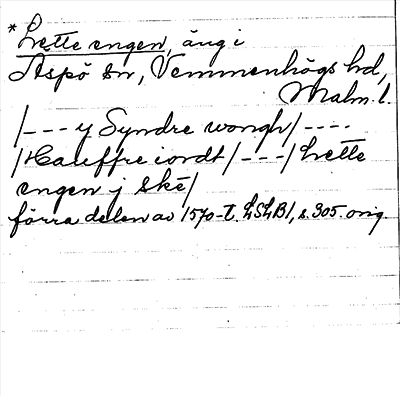 *Lette engen, äng i
Äspö sn, Vemmenhögs hd,
Malm. l.
/--- y Syndre wongh/ ----
/Hauffre iordt/ ---/ Lette
engen j Skè/
förra delen av 1570-t. LSLB1, s. 305. orig.